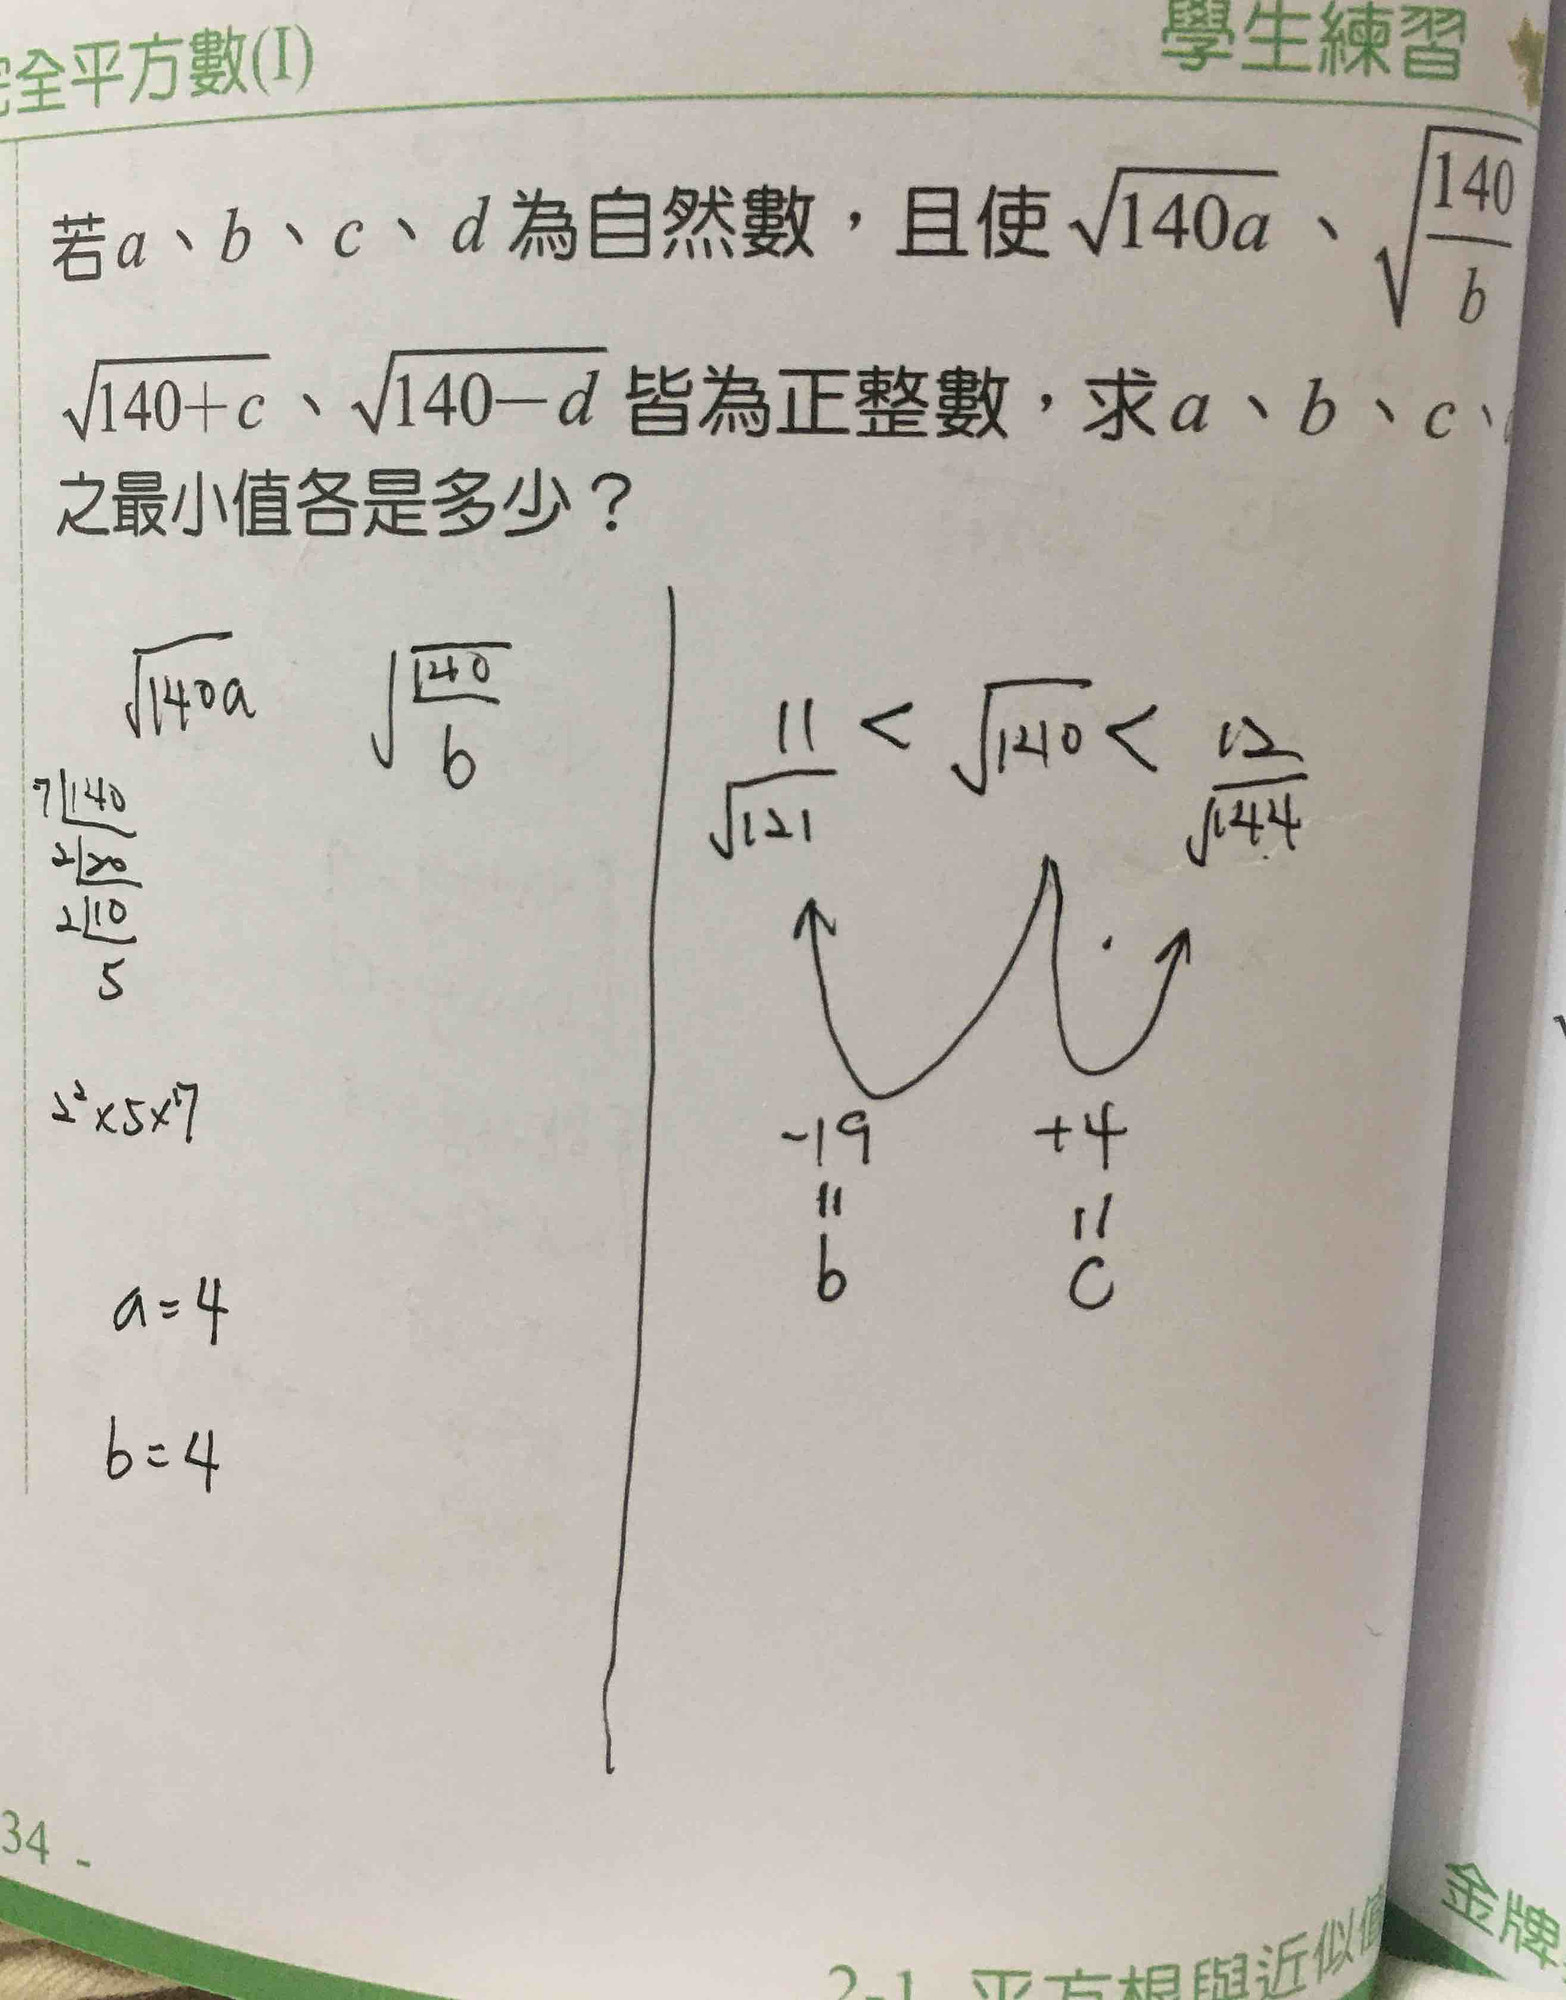 全平方數(I)
學生練習
若a、b、c、d為自然數，且使√140a、√140/b
√140+c、√140−d皆為正整數，求a、b、c、
之最小值各是多少？
√140a √140/b
7|140
2|20
2|10
5
2²×5×7
a=4
b=4
11 < √140 < 12
√121 √144
-19 +4
= =
b c
34 -
2-1 平方根與近似值
金牌